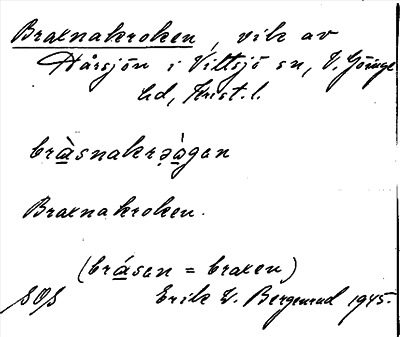 Braxnakroken, vik av
Hårsjön i Vittsjö sn, V. Göinge
hd, Krist. l.
bràsnakrə̀ə̀gan
Braxnakroken.
(bråsen = braxen)
SOS Erik W. Bergenrud 1945.